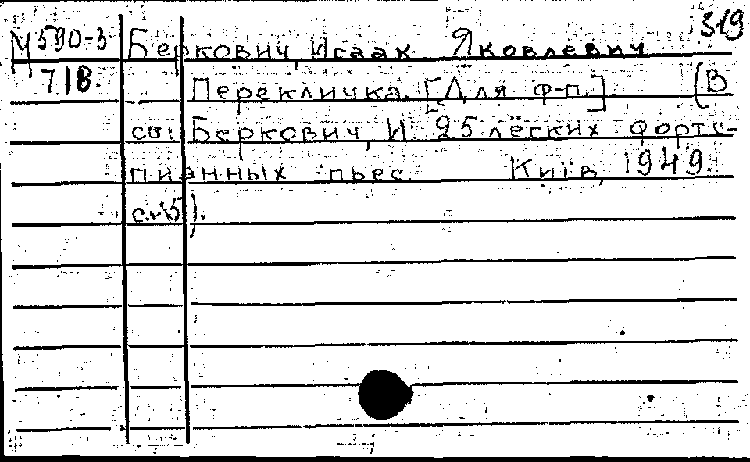 319
М 590-3 Беркович, Исаак Яковлевич
718. Перекличка. [Для ф-п.] (В
сб: Беркович, И. 25 лёгких форте-
пианных пьес. Київ, 1949.
с. 15).